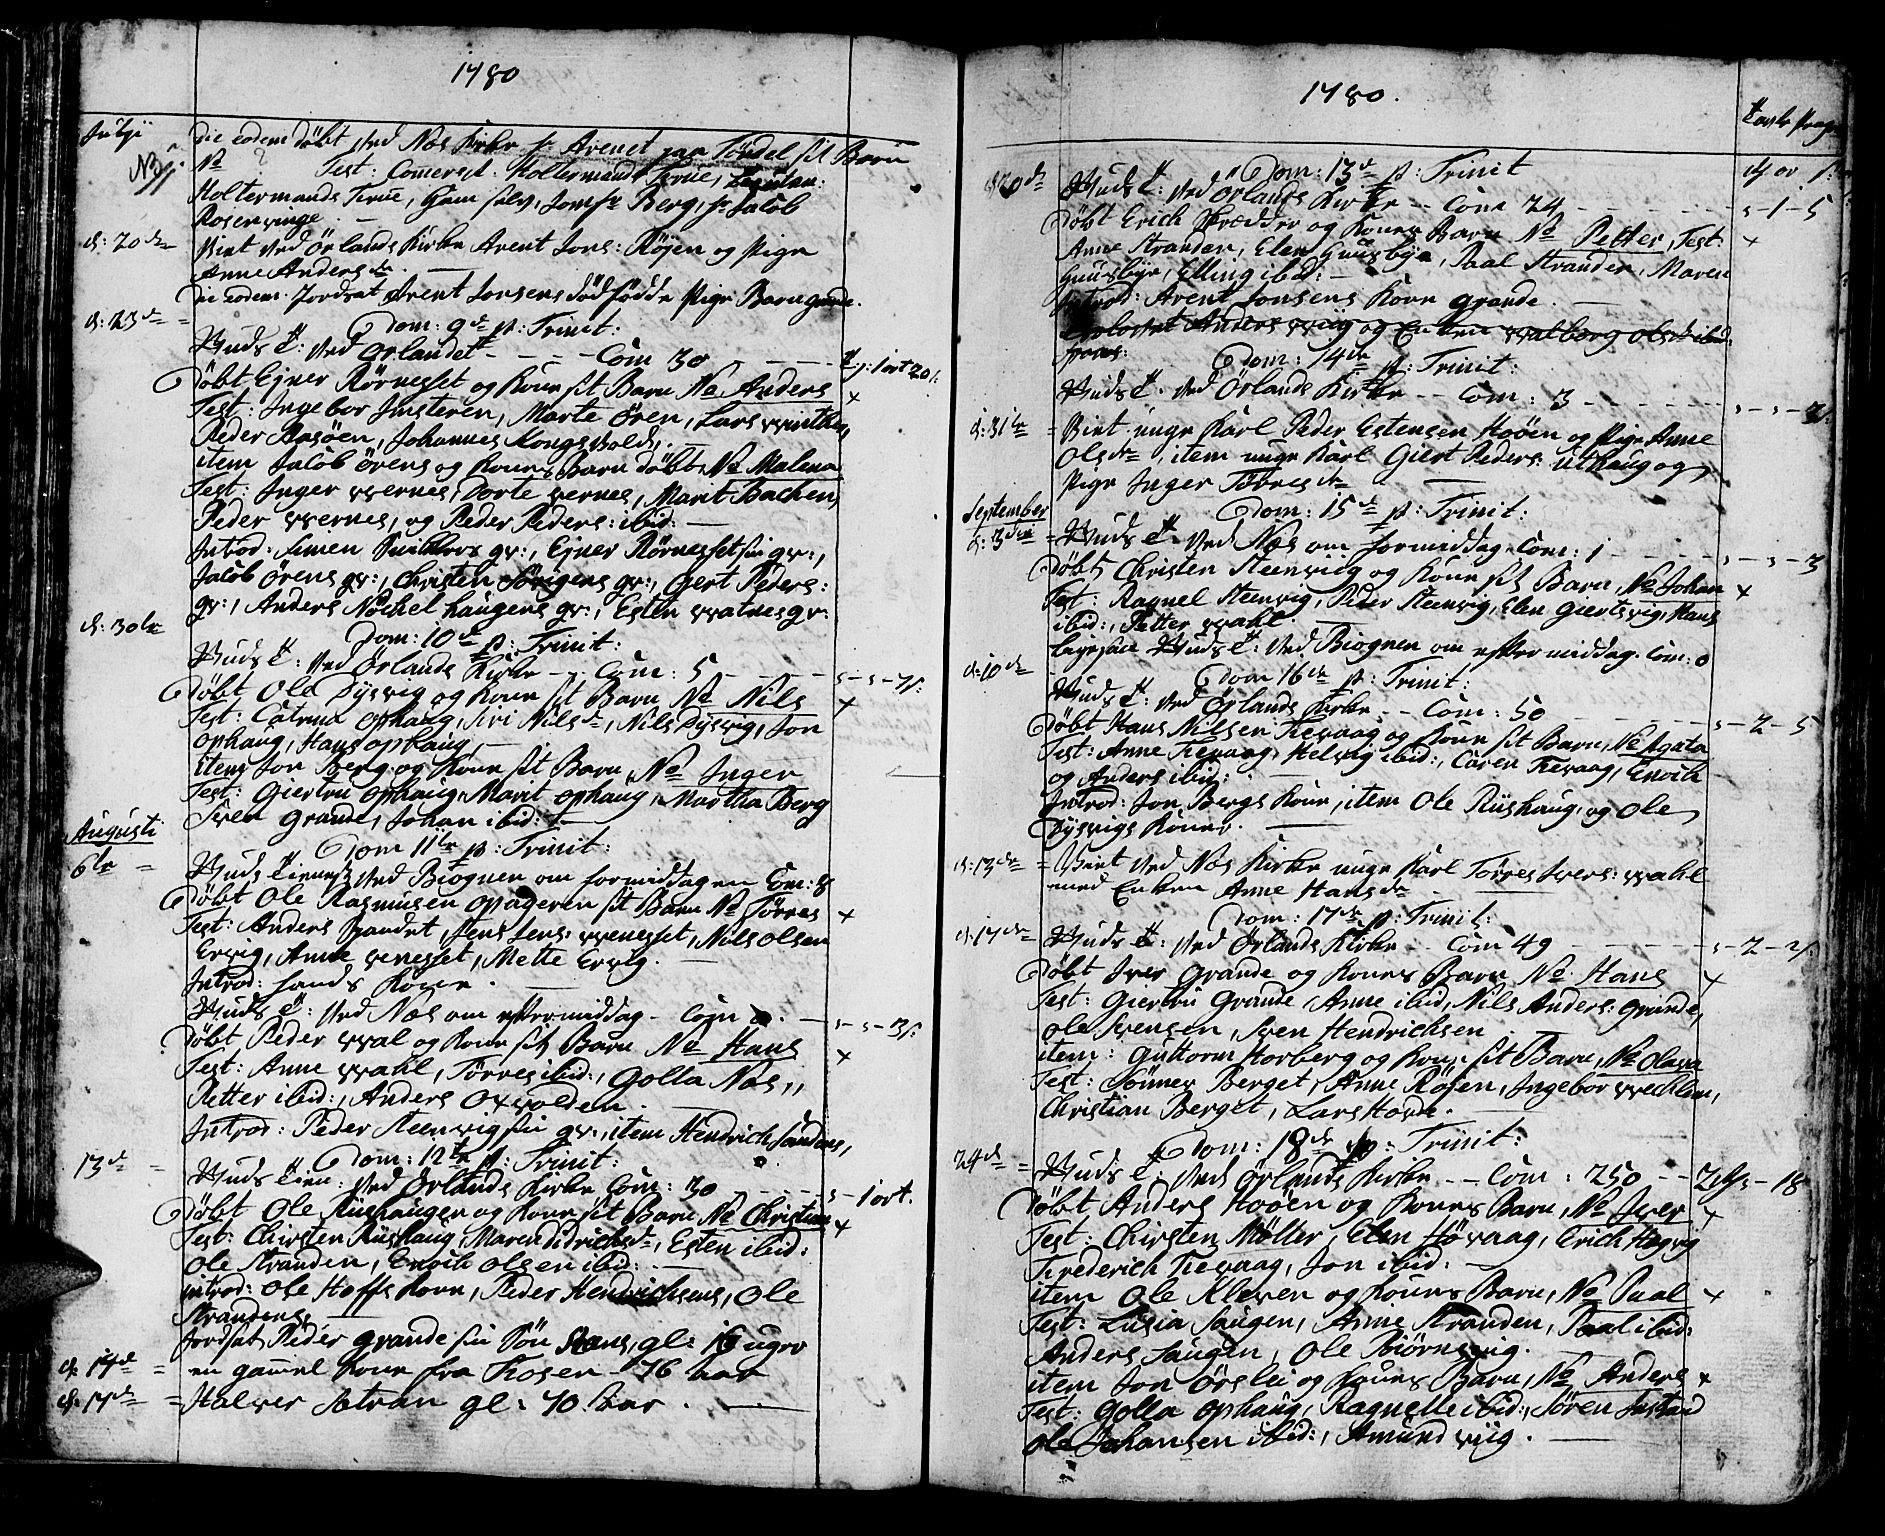 1780
Julji
die eodem döbt ved Næs Kirke Hr Arenet paa Tördel sit Barn
NB
No Test: Comersr: Holtermands Frue, Leutan:
Holtermands Frue, Gam selv, Jomfr Berg, Hr Jacob
Rosenvinge. —
d: 20de Viet ved Örlands Kirke Arent Jons: Röjen og Pige
Anne Andersdr. —
die eodem. Jordsat Arent Jonsens dödfödde Pige Barn grande.
d: 23de = Dom: 9de p: Trinit:
Guds t: ved Örlandet - - - - Com 30 - - - - 1 ort 20 s:
Döbt Ejner Rörnesset og Kone sit Barn No Anders ×
Test: Ingebor Justeren, Marte Ören, Lars Winther,
Peder Aasöen, Johannes Kongsvold. —
item Jacob Örens og Kones Barn döbt No Malena
Test: Inger Wernes, Dorte Wernes, Marit Bachen,
Peder Wernes, og Peder Peders: ibid: —
Introd: Simen gv:, Ejner Rörnesset sin gv:,
Jacob Örens gv:, Christen gv:, Giert Peders:
gv:, Anders Nöchelhaugens gv:, Esten Watnes gv:
d: 30te Dom: 10de p: Trinit:
Guds t: ved Örlands Kirke -- Com: 5 - - - -
Döbt Ole Dÿsvig og Kone sit Barn No Nils ×
Test: Catrina Ophaug, Siri Nilsdr, Nils Dÿsvig, Jon
Ophaug, Hans Ophaug, —
item Jon Berg og Kone sit Barn, No Inger
Test: Giertru Ophaug, Marit Ophaug, Martha Berg
Sven Grande, Johan ibid: —
Augusti
6te = Dom 11te p: Trinit:
Guds tienest ved Biognen om formiddagen Com: 8
Döbt Ole Rasmusen Opageren sit Barn No Törres ×
Test: Anders Jens Jens: Wenesset, Nils Olsen
Ervig, Anne Wenesset, Mette Ervig. —
Introd: Sands Kone. —
Guds t: ved Næs om eftermiddag - Com 2. - s - s - 3 s:
Döbt Peder Wal og Kone sit Barn No Hans ×
Test: Anne Wahl, Törres ibid:, Golla Næs,
Petter ibid:, Anders Oxvolden. —
Introd: Peder Steenvig sin gv:, item Hendrich Sandens,
13de = Dom: 12te p: Trinit:
Guds tien: ved Örlands Kirke Com: 30 - - - s - 1 ort.
Döbt Ole Rüshaugen og Kone sit Barn No Christian ×
Test: Chirsten Rüshaug, Maren Didrichsdr, Esten ibid:
Ole Stranden, Enoch Olsen ibid: —
introd: Ole Hoffs Kone, Peder Hendrichsens, Ole
Strandens. —
Jordsat Peder Grande sin Sön Hans, gl: 16 uger
d: 14de = en gamel Kone fra Kosen - 76 aar
d: 17de = Halver Sotran gl: 70 aar. —
1780.
d: 20de Dom: 13de p: Trinit
Guds t: ved Örlands Kirke -- Com 24 - - - - s - 1 - 5
Döbt Erich Skrædder og Kones Barn No Petter, Test: ×
Anne Stranden, Elen Guusbÿe, Paal Stranden, Maren
Guusbÿe, Elling ibid: —
Introd: Arent Jonsens Kone Grande. —
Anders Wiig og Enken Walborg Olsdr ibid:
Dom: 14de p: Trinit:
Guds t: ved Örlands Kirke -- Com: 3 - - - - - s - s - 2 s:
d: 31te = Viet unge Karl Peder Estensen Hoöen og Pige Anne
Olsdr, item unge Karl Giert Peders: Uthaug og
Pige Inger Törresdr —
September
Dom: 15de p: Trinit:
d: 3die = Guds t: ved Næs om formiddag Com: 1 - - - - s - s - 3
Döbt Christen Steenvig og Kone sit Barn, No Johan ×
Test: Ragnel Steenvig, Peder Steenvig, Elen Giertsvig, Hans
ibid:, Petter Wahl. —
Guds t: ved Biognen om eftermiddag. Com: 0
d: 10de Dom 16de p: Trinit:
Guds t: ved Örlands Kirke -- Com: 50 - - - - s - 2 - 5
Döbt Hans Nilsen Tievaag og Kone sit Barn, No Agata
Test: Anne Tievaag, Helvig ibid:, Caren Tievaag, Enoch
og Anders ibid: —
Introd: Jon Bergs Kone, item Ole Rüshaug, og Ole
Dÿsvigs Koner. —
d: 13de = Viet ved Næs Kirke unge Karl Törres Ivers: Wahl
med Enken Anne Hansdr. —
Dom: 17de p: Trinit:
d: 17de = Guds t: ved Örlands Kirke -- Com 49 - - - - s - 2 - 2 s:
Döbt Iver Grande og Kones Barn No Hans ×
Test: Giertru Grande, Anne ibid, Nils Anders: Grande,
Ole Svensen, Sven Hendrichsen
item: Guttorm Storberg og Kone sit Barn, No Olava
Test: Sönnev Berget, Anne Röjen, Ingebor Wecklem,
Christian Berget, Lars Hovde. —
Dom: 18de p: Trinit:
24de = Guds t: ved Örlands Kirke -- Com: 250 -- 18
Döbt Anders Hoöen og Kones Barn, No Iver ×
Test: Chirsten Möller, Elen Hövaag, Erich Hegvig
Frederich Tievaag, Jon ibid: —
item Ole Kleven og Kones Barn, No Paal ×
Test: Lusia Haugen, Anne Stranden, Paal ibid:
Anders Haugen, Ole Biörnsvig. —
item Jon Örslei og Kones Barn, No Anders ×
Test: Golla Ophaug, Ragnelle ibid:, Sören
Ole Johansen ibid:, Amund Wiig. —